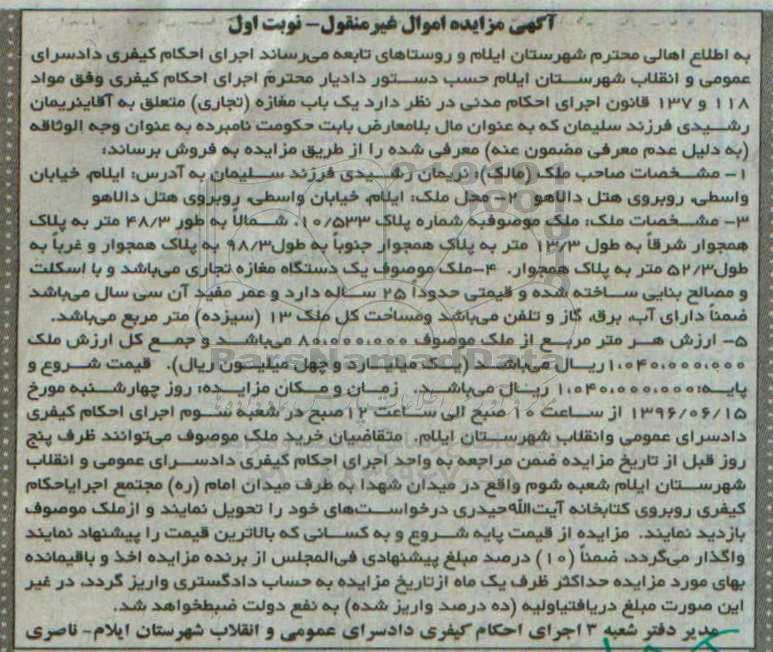 آگهی مزایده اموال غیرمنقول- نوبت اول
به اطلاع اهالی محترم شهرستان ایلام و روستاهای تابعه می‌رساند اجرای احکام کیفری دادسرای
عمومی و انقلاب شهرستان ایلام حسب دستور دادیار محترم اجرای احکام کیفری وفق مواد
۱۱۸ و ۱۳۷ قانون اجرای احکام مدنی در نظر دارد یک باب مغازه (تجاری) متعلق به آقاینریمان
رشیدی فرزند سلیمان که به عنوان مال بلامعارض بابت حکومت نامبرده به عنوان وجه الوثاقه
(به دلیل عدم معرفی مضمون عنه) معرفی شده را از طریق مزایده به فروش برساند:
۱- مشخصات صاحب ملک (مالک): نریمان رشیدی فرزند سلیمان به آدرس: ایلام، خیابان
واسطی، روبروی هتل دالاهو ۲- محل ملک: ایلام، خیابان واسطی، روبروی هتل دالاهو
۳- مشخصات ملک: ملک موصوفبه شماره پلاک ۱۰/۵۳۳، شمالاً به طور ۴۸/۳ متر به پلاک
همجوار شرقاً به طول ۱۳/۳ متر به پلاک همجوار جنوباً به طول۹۸/۳ به پلاک همجوار و غرباً به
طول۵۲/۳ متر به پلاک همجوار. ۴-ملک موصوف یک دستگاه مغازه تجاری می‌باشد و با اسکلت
و مصالح بنایی ساخته شده و قیمتی حدوداً ۲۵ ساله دارد و عمر مفید آن سی سال می‌باشد
ضمناً دارای آب، برق، گاز و تلفن می‌باشد ومساحت کل ملک ۱۳ (سیزده) متر مربع می‌باشد.
۵- ارزش هر متر مربع از ملک موصوف ۸۰،۰۰۰،۰۰۰ می‌باشد و جمع کل ارزش ملک
۱،۰۴۰،۰۰۰،۰۰۰ریال می‌باشد (یک میلیارد و چهل میلیون ریال). قیمت شروع و
پایه:۱،۰۴۰،۰۰۰،۰۰۰ ریال می‌باشد. زمان و مکان مزایده: روز چهارشنبه مورخ
۱۳۹۶/۰۶/۱۵ از ساعت ۱۰ صبح الی ساعت ۱۲صبح در شعبه سوم اجرای احکام کیفری
دادسرای عمومی وانقلاب شهرستان ایلام. متقاضیان خرید ملک موصوف می‌توانند ظرف پنج
روز قبل از تاریخ مزایده ضمن مراجعه به واحد اجرای احکام کیفری دادسرای عمومی و انقلاب
شهرستان ایلام شعبه شوم واقع در میدان شهدا به طرف میدان امام (ره) مجتمع اجرایاحکام
کیفری روبروی کتابخانه آیت‌الله‌حیدری درخواست‌های خود را تحویل نمایند و ازملک موصوف
بازدید نمایند. مزایده از قیمت پایه شروع و به کسانی که بالاترین قیمت را پیشنهاد نمایند
واگذار می‌گردد، ضمناً (۱۰) درصد مبلغ پیشنهادی فی‌المجلس از برنده مزایده اخذ و باقیمانده
بهای مورد مزایده حداکثر ظرف یک ماه ازتاریخ مزایده به حساب دادگستری واریز گردد، در غیر
این صورت مبلغ دریافتیاولیه (ده درصد واریز شده) به نفع دولت ضبطخواهد شد.
مدیر دفتر شعبه ۳ اجرای احکام کیفری دادسرای عمومی و انقلاب شهرستان ایلام- ناصری
ParsNamadData